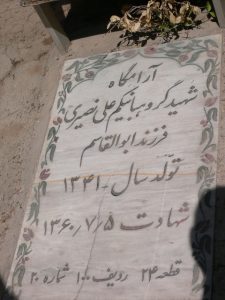 آرامگاه
شهید گروهبانیکم علی نصیری
فرزند ابوالقاسم
تولد سال - ۱۳۴۱
شهادت ۱۳۶۰٫۷٫۵
قطعه ۲۴ ردیف ۱۰۰ شماره ۲۰